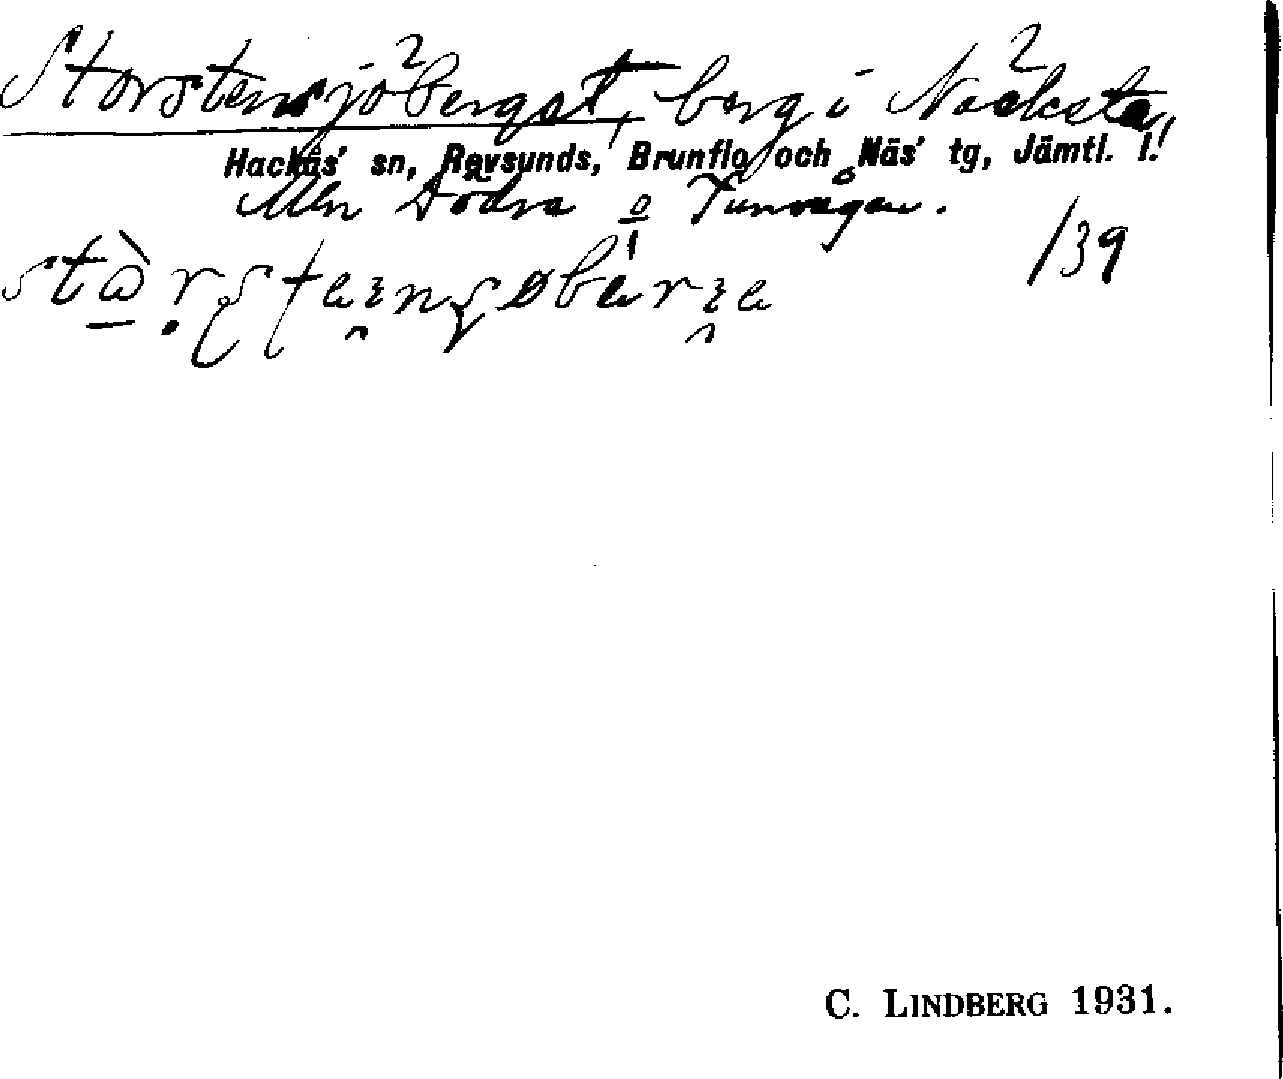 Storstensjöberget, berg i Näcksta,
Hackås' sn, Revsunds, Brunflo och Näs' tg, Jämtl. l.
Mln Södra o Tunvågen.
/39
C. LINDBERG 1931.